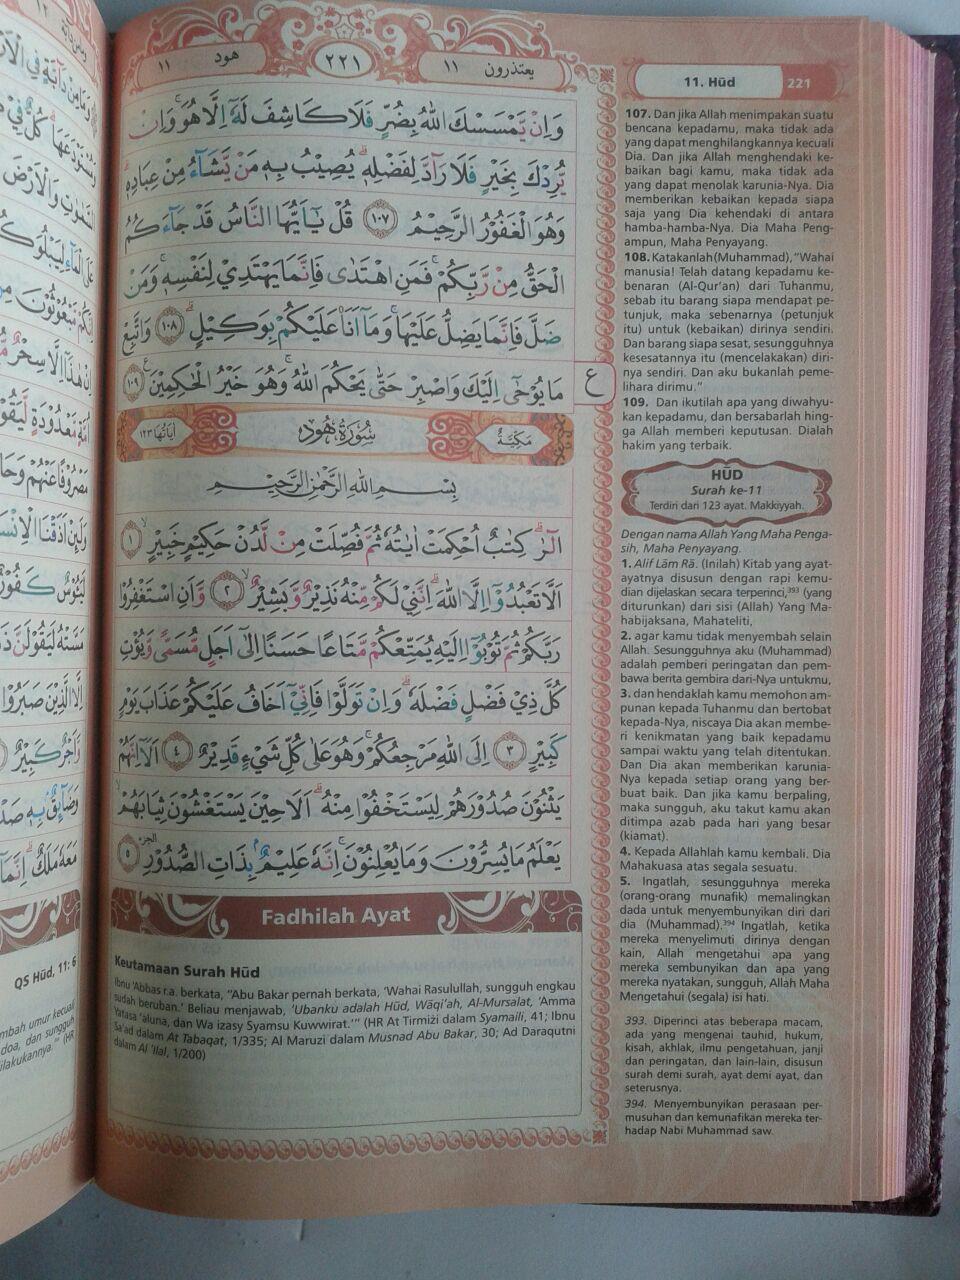 هود ١١
٢٢١
يعتذرون ١١
وَاِنْ يَّمْسَسْكَ اللّٰهُ بِضُرٍّ فَلَا كَاشِفَ لَهٗٓ اِلَّا هُوَ ۚوَاِنْ
يُّرِدْكَ بِخَيْرٍ فَلَا رَاۤدَّ لِفَضْلِهٖۗ يُصِيْبُ بِهٖ مَنْ يَّشَاۤءُ مِنْ عِبَادِهٖ ۗ
وَهُوَ الْغَفُوْرُ الرَّحِيْمُ ١٠٧ قُلْ يٰٓاَيُّهَا النَّاسُ قَدْ جَاۤءَكُمُ
الْحَقُّ مِنْ رَّبِّكُمْ ۚفَمَنِ اهْتَدٰى فَاِنَّمَا يَهْتَدِيْ لِنَفْسِهٖ ۚوَمَنْ
ضَلَّ فَاِنَّمَا يَضِلُّ عَلَيْهَا ۚوَمَآ اَنَا۠ عَلَيْكُمْ بِوَكِيْلٍۗ ١٠٨ وَاتَّبِعْ
مَا يُوْحٰٓى اِلَيْكَ وَاصْبِرْ حَتّٰى يَحْكُمَ اللّٰهُ ۚوَهُوَ خَيْرُ الْحٰكِمِيْنَ ١٠٩
ع
مَكِّيَّةٌ
سُوْرَةُ هُوْد
اٰيَاتُهَا ١٢٣
بِسْمِ اللّٰهِ الرَّحْمٰنِ الرَّحِيْمِ
الۤرٰ ۗ كِتٰبٌ اُحْكِمَتْ اٰيٰتُهٗ ثُمَّ فُصِّلَتْ مِنْ لَّدُنْ حَكِيْمٍ خَبِيْرٍ ١
اَلَّا تَعْبُدُوْٓا اِلَّا اللّٰهَ ۗاِنَّنِيْ لَكُمْ مِّنْهُ نَذِيْرٌ وَّبَشِيْرٌ ٢ وَّاَنِ اسْتَغْفِرُوْا
رَبَّكُمْ ثُمَّ تُوْبُوْٓا اِلَيْهِ يُمَتِّعْكُمْ مَّتَاعًا حَسَنًا اِلٰٓى اَجَلٍ مُّسَمًّى وَّيُؤْتِ
كُلَّ ذِيْ فَضْلٍ فَضْلَهٗ ۗوَاِنْ تَوَلَّوْا فَاِنِّيْٓ اَخَافُ عَلَيْكُمْ عَذَابَ يَوْمٍ
كَبِيْرٍ ٣ اِلَى اللّٰهِ مَرْجِعُكُمْ ۚوَهُوَ عَلٰى كُلِّ شَيْءٍ قَدِيْرٌ ٤ اَلَآ اِنَّهُمْ
يَثْنُوْنَ صُدُوْرَهُمْ لِيَسْتَخْفُوْا مِنْهُ ۗاَلَا حِيْنَ يَسْتَغْشُوْنَ ثِيَابَهُمْ ۙ
يَعْلَمُ مَا يُسِرُّوْنَ وَمَا يُعْلِنُوْنَۚ اِنَّهٗ عَلِيْمٌ ۢبِذَاتِ الصُّدُوْرِ ٥
Fadhilah Ayat
Keutamaan Surah Hūd
Ibnu 'Abbas r.a. berkata, "Abu Bakar pernah berkata, 'Wahai Rasulullah, sungguh engkau
sudah beruban.' Beliau menjawab, 'Ubanku adalah Hūd, Wāqi'ah, Al-Mursalat, 'Amma
Yatasa 'aluna, dan Wa izasy Syamsu Kuwwirat.'" (HR At Tirmiżi dalam Syamaili, 41; Ibnu
Sa'ad dalam At Tabaqat, 1/335; Al Maruzi dalam Musnad Abu Bakar, 30; Ad Daraqutni
dalam Al 'Ilal, 1/200)
11. Hūd 221
107. Dan jika Allah menimpakan suatu
bencana kepadamu, maka tidak ada
yang dapat menghilangkannya kecuali
Dia. Dan jika Allah menghendaki ke-
baikan bagi kamu, maka tidak ada
yang dapat menolak karunia-Nya. Dia
memberikan kebaikan kepada siapa
saja yang Dia kehendaki di antara
hamba-hamba-Nya. Dia Maha Peng-
ampun, Maha Penyayang.
108. Katakanlah (Muhammad), "Wahai
manusia! Telah datang kepadamu ke-
benaran (Al-Qur'an) dari Tuhanmu,
sebab itu barang siapa mendapat pe-
tunjuk, maka sebenarnya (petunjuk
itu) untuk (kebaikan) dirinya sendiri.
Dan barang siapa sesat, sesungguhnya
kesesatannya itu (mencelakakan) diri-
nya sendiri. Dan aku bukanlah peme-
lihara dirimu."
109. Dan ikutilah apa yang diwahyu-
kan kepadamu, dan bersabarlah hing-
ga Allah memberi keputusan. Dialah
hakim yang terbaik.
HŪD
Surah ke-11
Terdiri dari 123 ayat. Makkiyyah.
Dengan nama Allah Yang Maha Penga-
sih, Maha Penyayang.
1. Alif Lām Rā. (Inilah) Kitab yang ayat-
ayatnya disusun dengan rapi kemu-
dian dijelaskan secara terperinci,393 (yang
diturunkan) dari sisi (Allah) Yang Ma-
habijaksana, Mahateliti,
2. agar kamu tidak menyembah selain
Allah. Sesungguhnya aku (Muhammad)
adalah pemberi peringatan dan pem-
bawa berita gembira dari-Nya untukmu,
3. dan hendaklah kamu memohon am-
punan kepada Tuhanmu dan bertobat
kepada-Nya, niscaya Dia akan membe-
ri kenikmatan yang baik kepadamu
sampai waktu yang telah ditentukan.
Dan Dia akan memberikan karunia-
Nya kepada setiap orang yang ber-
buat baik. Dan jika kamu berpaling,
maka sungguh, aku takut kamu akan
ditimpa azab pada hari yang besar
(kiamat).
4. Kepada Allahlah kamu kembali. Dia
Mahakuasa atas segala sesuatu.
5. Ingatlah, sesungguhnya mereka
(orang-orang munafik) memalingkan
dada untuk menyembunyikan diri dari
dia (Muhammad).394 Ingatlah, ketika
mereka menyelimuti dirinya dengan
kain, Allah mengetahui apa yang
mereka sembunyikan dan apa yang
mereka nyatakan, sungguh, Allah Maha
Mengetahui (segala) isi hati.
393. Diperinci atas beberapa macam,
ada yang mengenai tauhid, hukum,
kisah, akhlak, ilmu pengetahuan, janji
dan peringatan, dan lain-lain, disusun
surah demi surah, ayat demi ayat, dan
seterusnya.
394. Menyembunyikan perasaan per-
musuhan dan kemunafikan mereka ter-
hadap Nabi Muhammad saw.
QS Hūd, 11: 6